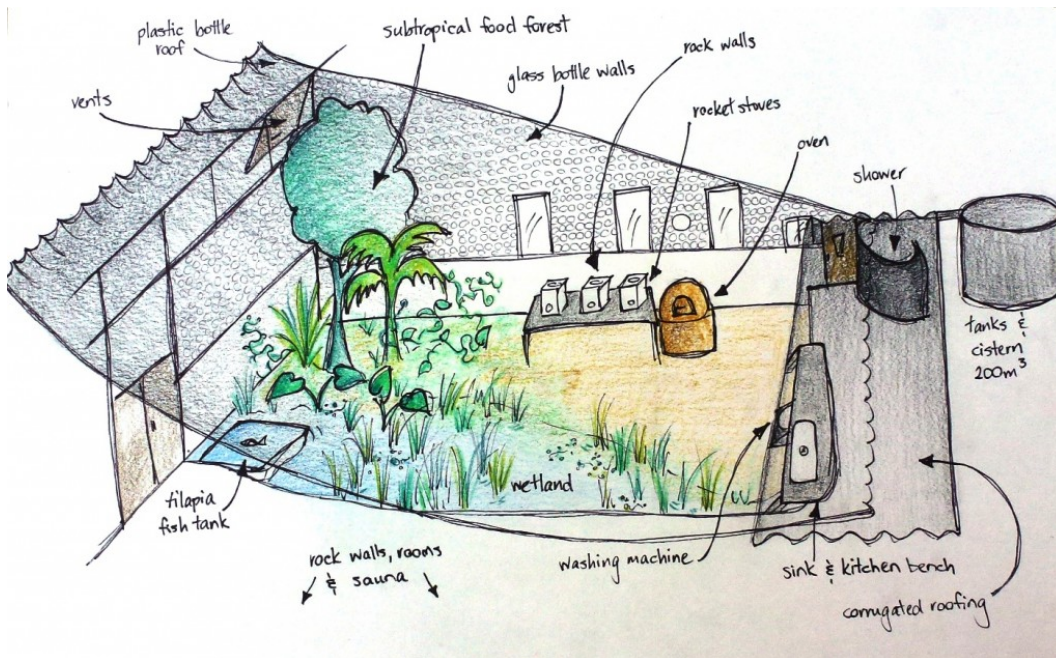 plastic bottle
roof
subtropical food forest
rock walls
vents
glass bottle walls
rocket stoves
oven
shower
tanks &
cistern
200m³
wetland
tilapia
fish tank
rock walls, rooms
& sauna
washing machine
sink & kitchen bench
corrugated roofing